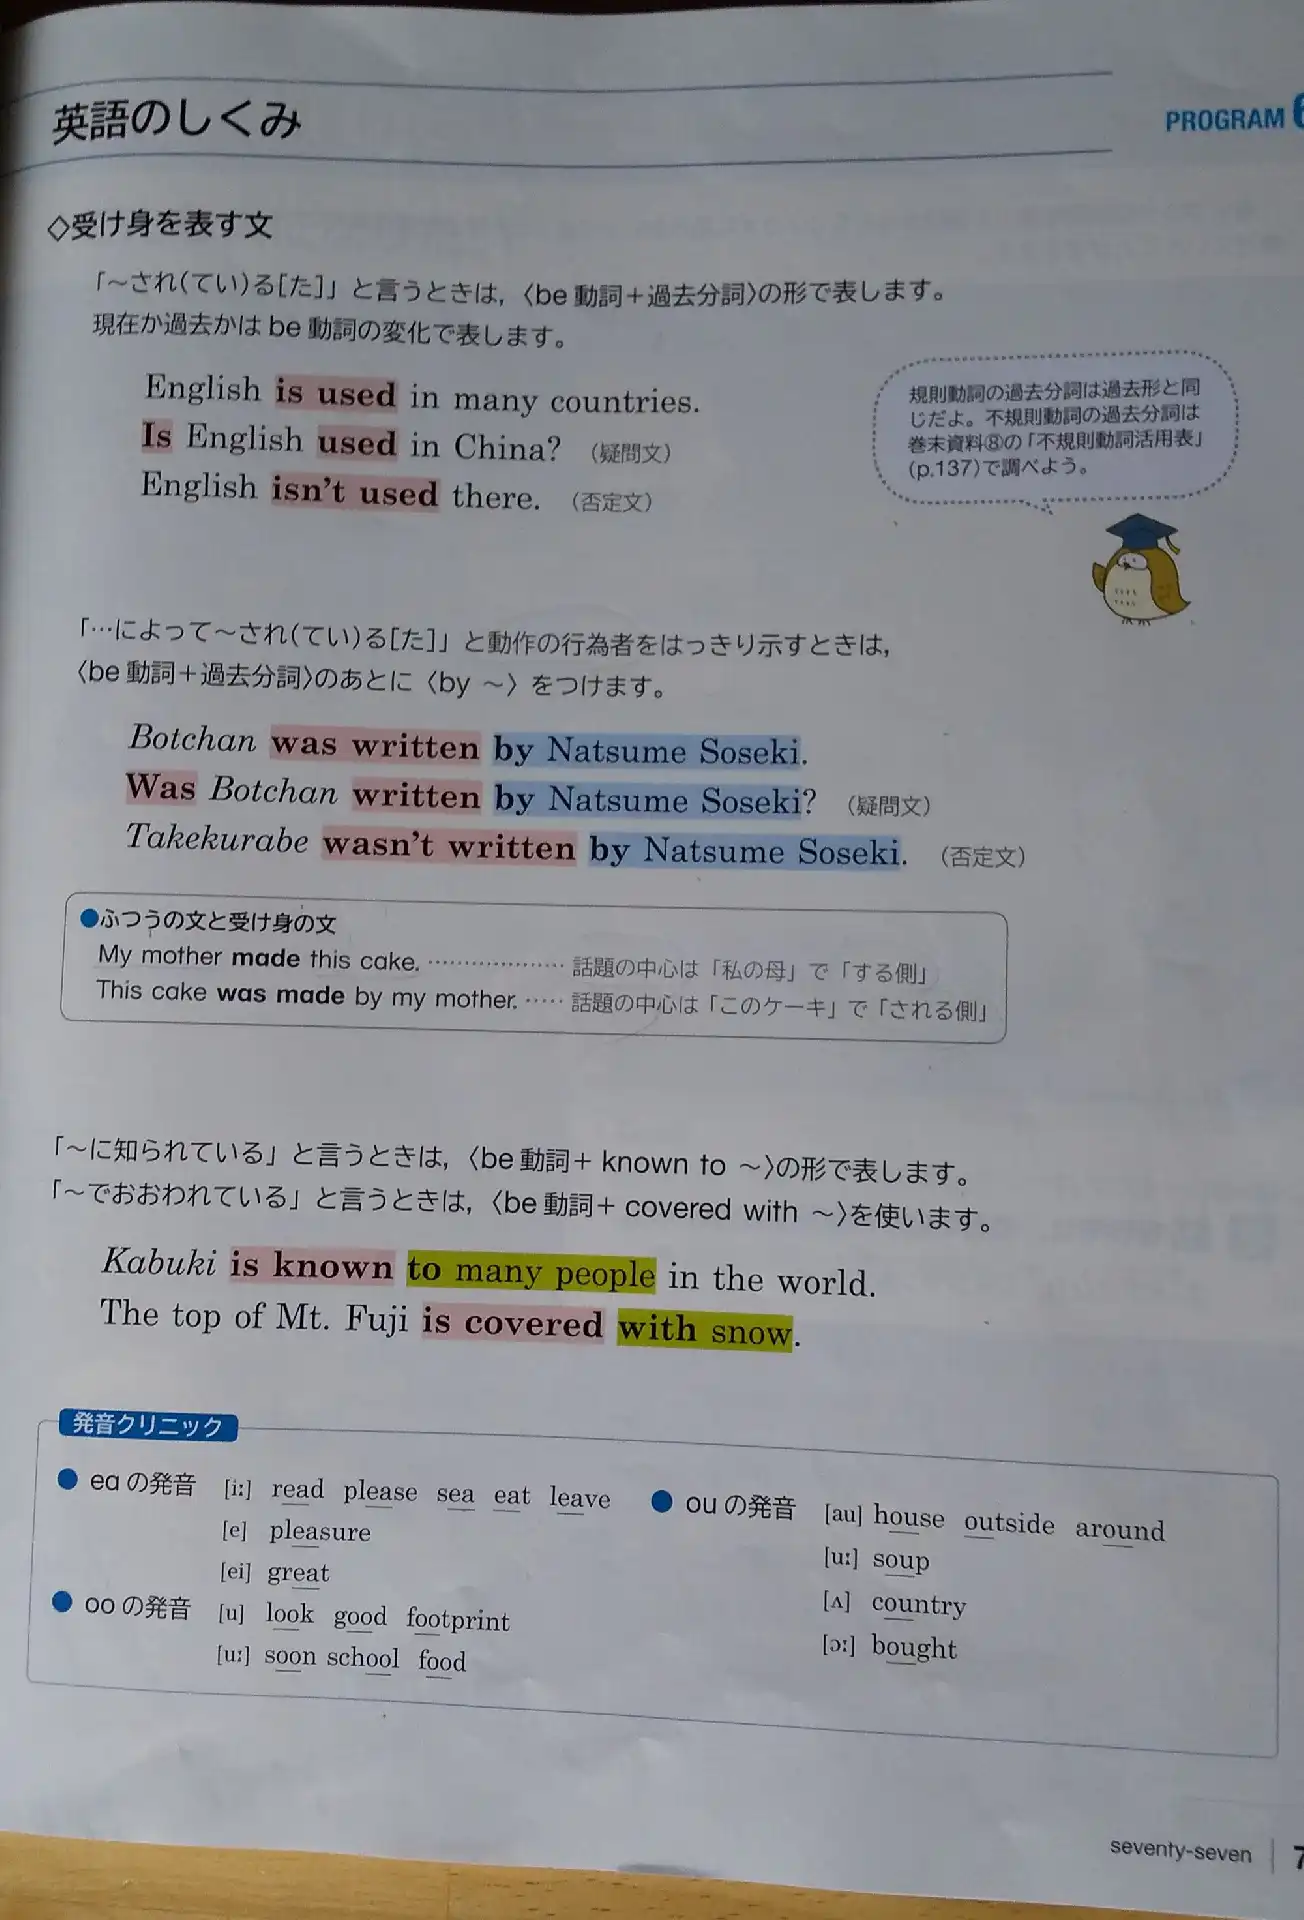 英語のしくみ
PROGRAM 6
◇受け身を表す文
「～され(てい)る[た]」と言うときは,〈be動詞＋過去分詞〉の形で表します。
現在か過去かはbe動詞の変化で表します。
English is used in many countries.
Is English used in China? (疑問文)
English isn't used there. (否定文)
規則動詞の過去分詞は過去形と同
じだよ。不規則動詞の過去分詞は
巻末資料⑧の「不規則動詞活用表」
(p.137)で調べよう。
「…によって～され(てい)る[た]」と動作の行為者をはっきり示すときは,
〈be動詞＋過去分詞〉のあとに〈by ～〉をつけます。
Botchan was written by Natsume Soseki.
Was Botchan written by Natsume Soseki? (疑問文)
Takekurabe wasn't written by Natsume Soseki. (否定文)
●ふつうの文と受け身の文
My mother made this cake. ………………… 話題の中心は「私の母」で「する側」
This cake was made by my mother. …… 話題の中心は「このケーキ」で「される側」
「～に知られている」と言うときは,〈be動詞＋ known to ～〉の形で表します。
「～でおおわれている」と言うときは,〈be動詞＋ covered with ～〉を使います。
Kabuki is known to many people in the world.
The top of Mt. Fuji is covered with snow.
発音クリニック
● eaの発音 [iː] read please sea eat leave
[e] pleasure
[ei] great
● ooの発音 [u] look good footprint
[uː] soon school food
● ouの発音 [au] house outside around
[uː] soup
[ʌ] country
[ɔː] bought
seventy-seven